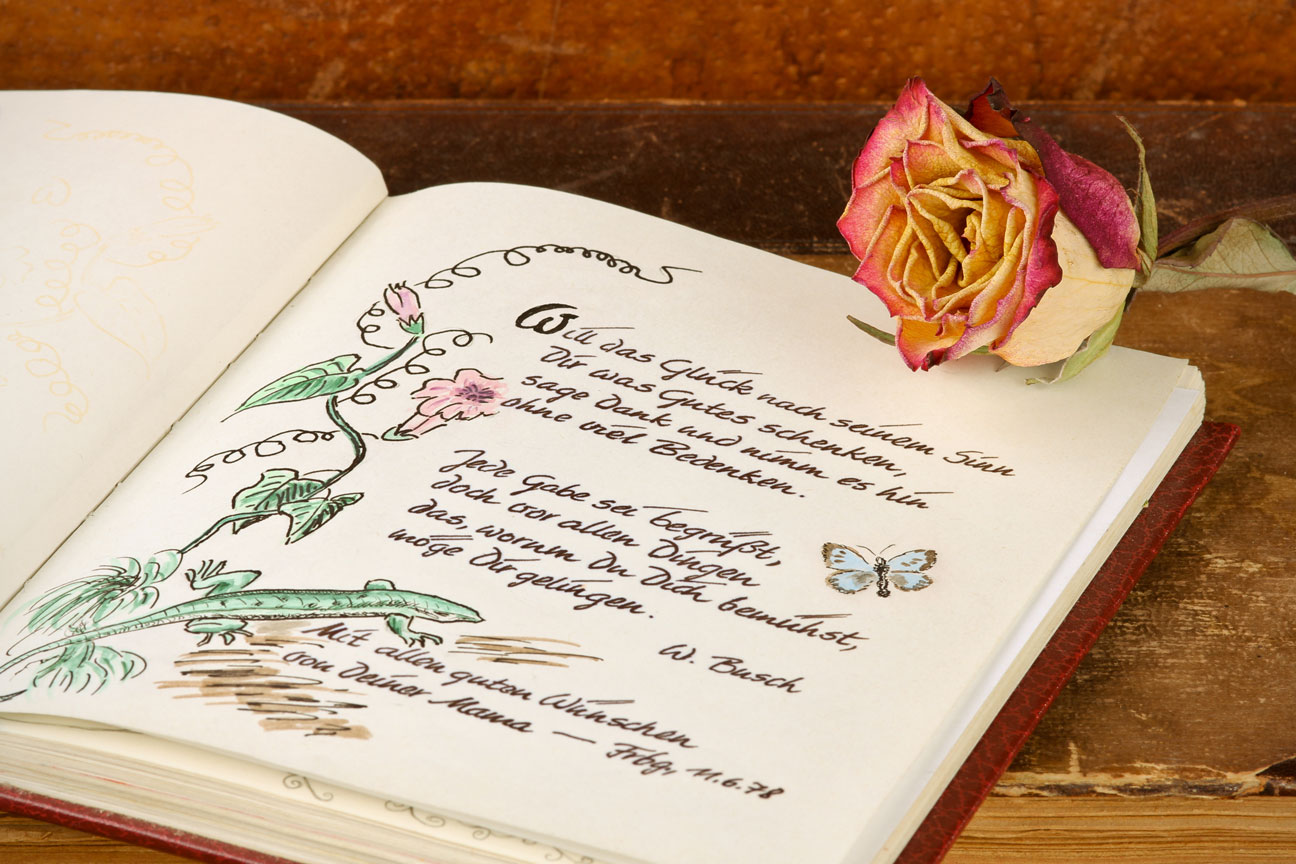 Will das Glück nach seinem Sinn
Dir was Gutes schenken,
sage Dank und nimm es hin
ohne viel Bedenken.
Jede Gabe sei begrüßt,
doch vor allen Dingen
das, worum Du Dich bemühst,
möge Dir gelingen.
W. Busch
Mit allen guten Wünschen
von Deiner Mama — Frbg, 11.6.78